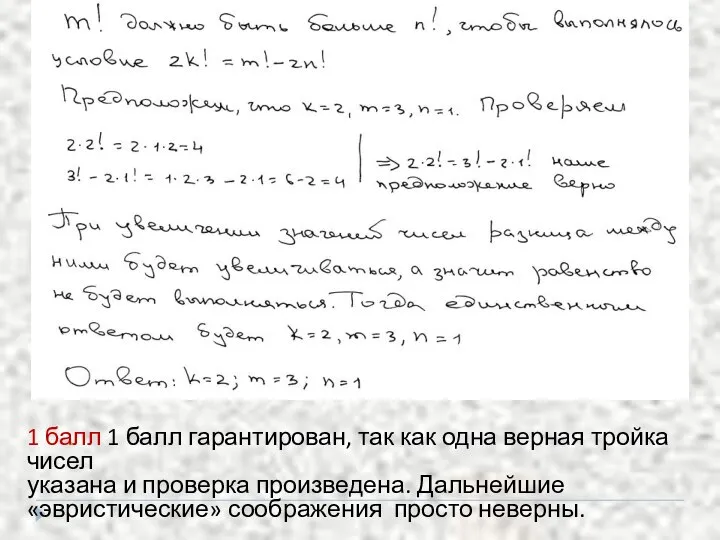 m! должно быть больше n!, чтобы выполнялось
условие 2k! = m! - 2n!
Предположем, что k=2, m=3, n=1. Проверяем
2·2! = 2·1·2=4
3! - 2·1! = 1·2·3 - 2·1 = 6-2=4
=> 2·2! = 3! - 2·1! наше
предположение верно
При увеличении значений чисел разница между
ними будет увеличиваться, а значит равенство
не будет выполняться. Тогда единственным
ответом будет k=2, m=3, n=1
Ответ: k=2; m=3; n=1
1 балл 1 балл гарантирован, так как одна верная тройка
чисел
указана и проверка произведена. Дальнейшие
«эвристические» соображения просто неверны.